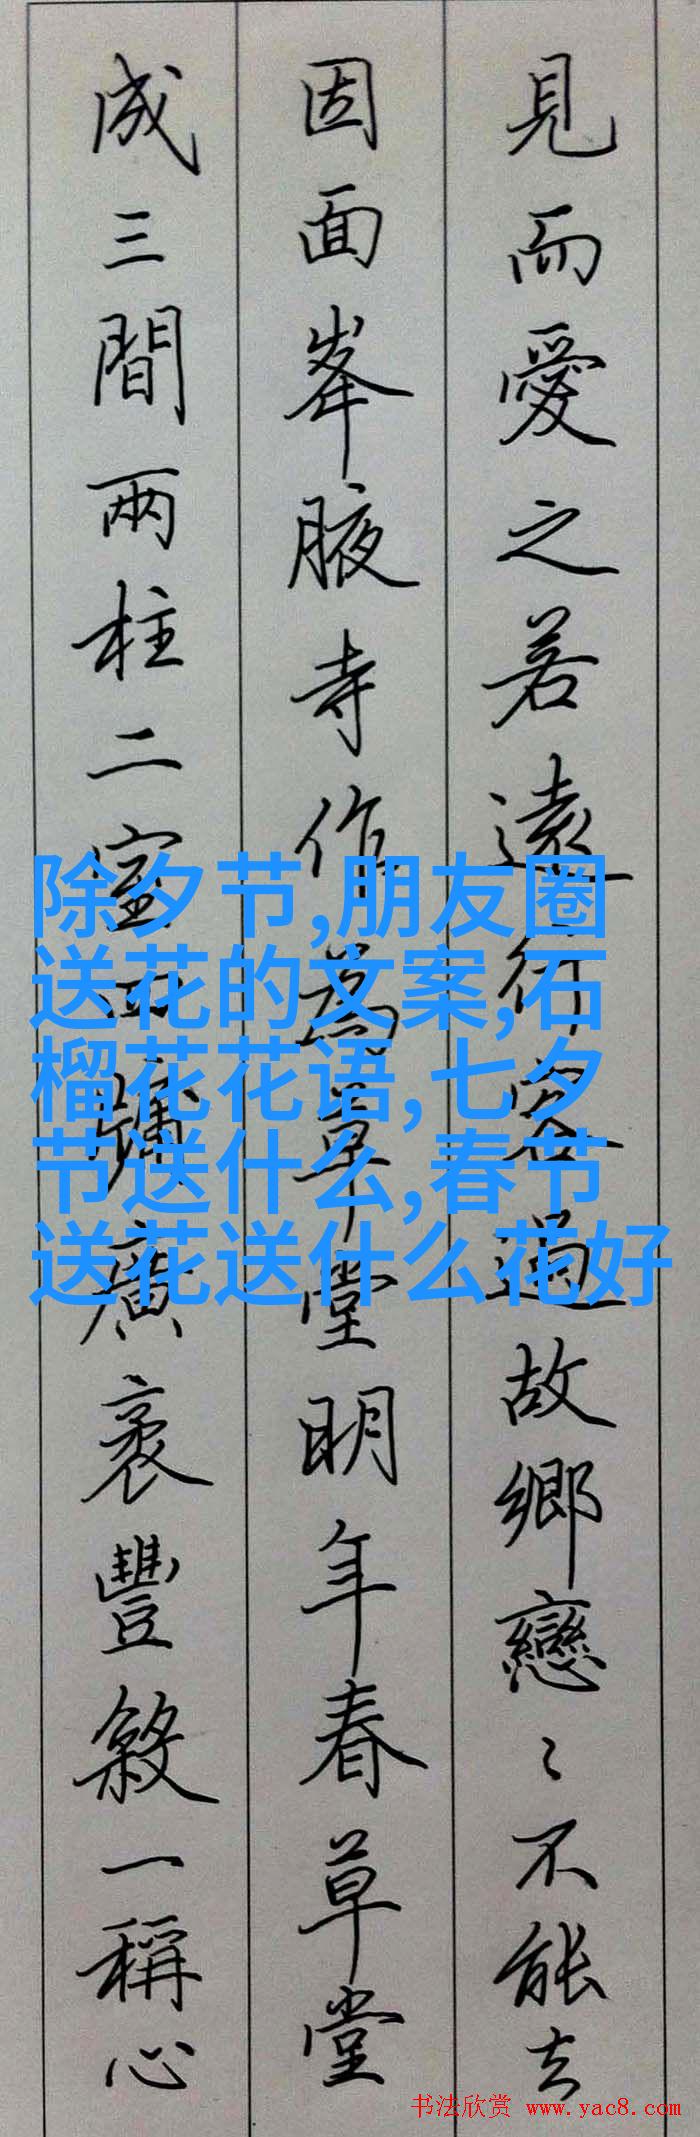 見而愛之若遠行客過故鄉戀〻不能去
因面峯腋寺作為草堂明年春草堂
成三間兩柱二室四牖廣袤豐殺一稱心
除夕节,朋友圈
送花的文案,石
榴花花语,七夕
节送什么,春节
送花送什么花好
书法欣赏 www.yac8.com